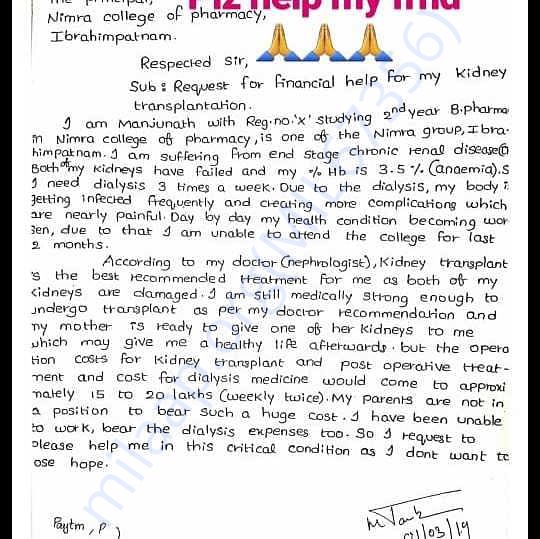 Plz help my frnd
Nimra college of pharmacy,
Ibrahimpatnam.
Respected Sir,
Sub : Request for financial help for my kidney
transplantation.
I am Manjunath with Reg.no.'x' studying 2nd year B.pharma
in Nimra college of pharmacy, is one of the Nimra group, Ibra-
himpatnam. I am suffering from end stage chronic renal disease(
Both of my kidneys have failed and my % Hb is 3.5% (anaemia). S
I need dialysis 3 times a week. Due to the dialysis, my body is
getting infected frequently and creating more complications which
are nearly painful. Day by day my health condition becoming wor
sen, due to that I am unable to attend the college for last
2 months.
According to my doctor (nephrologist), Kidney transplant
is the best recommended treatment for me as both of my
kidneys are damaged. I am still medically strong enough to
undergo transplant as per my doctor recommendation and
my mother is ready to give one of her kidneys to me
which may give me a healthy life afterwards. but the opera
tion costs for kidney transplant and post operative treat-
ment and cost for dialysis medicine would come to approxi
mately 15 to 20 lakhs (weekly twice). My parents are not in
a position to bear such a huge cost. I have been unable
to work, bear the dialysis expenses too. So I request to
please help me in this critical condition as I dont want to
ose hope.
Paytm, P
/03/19